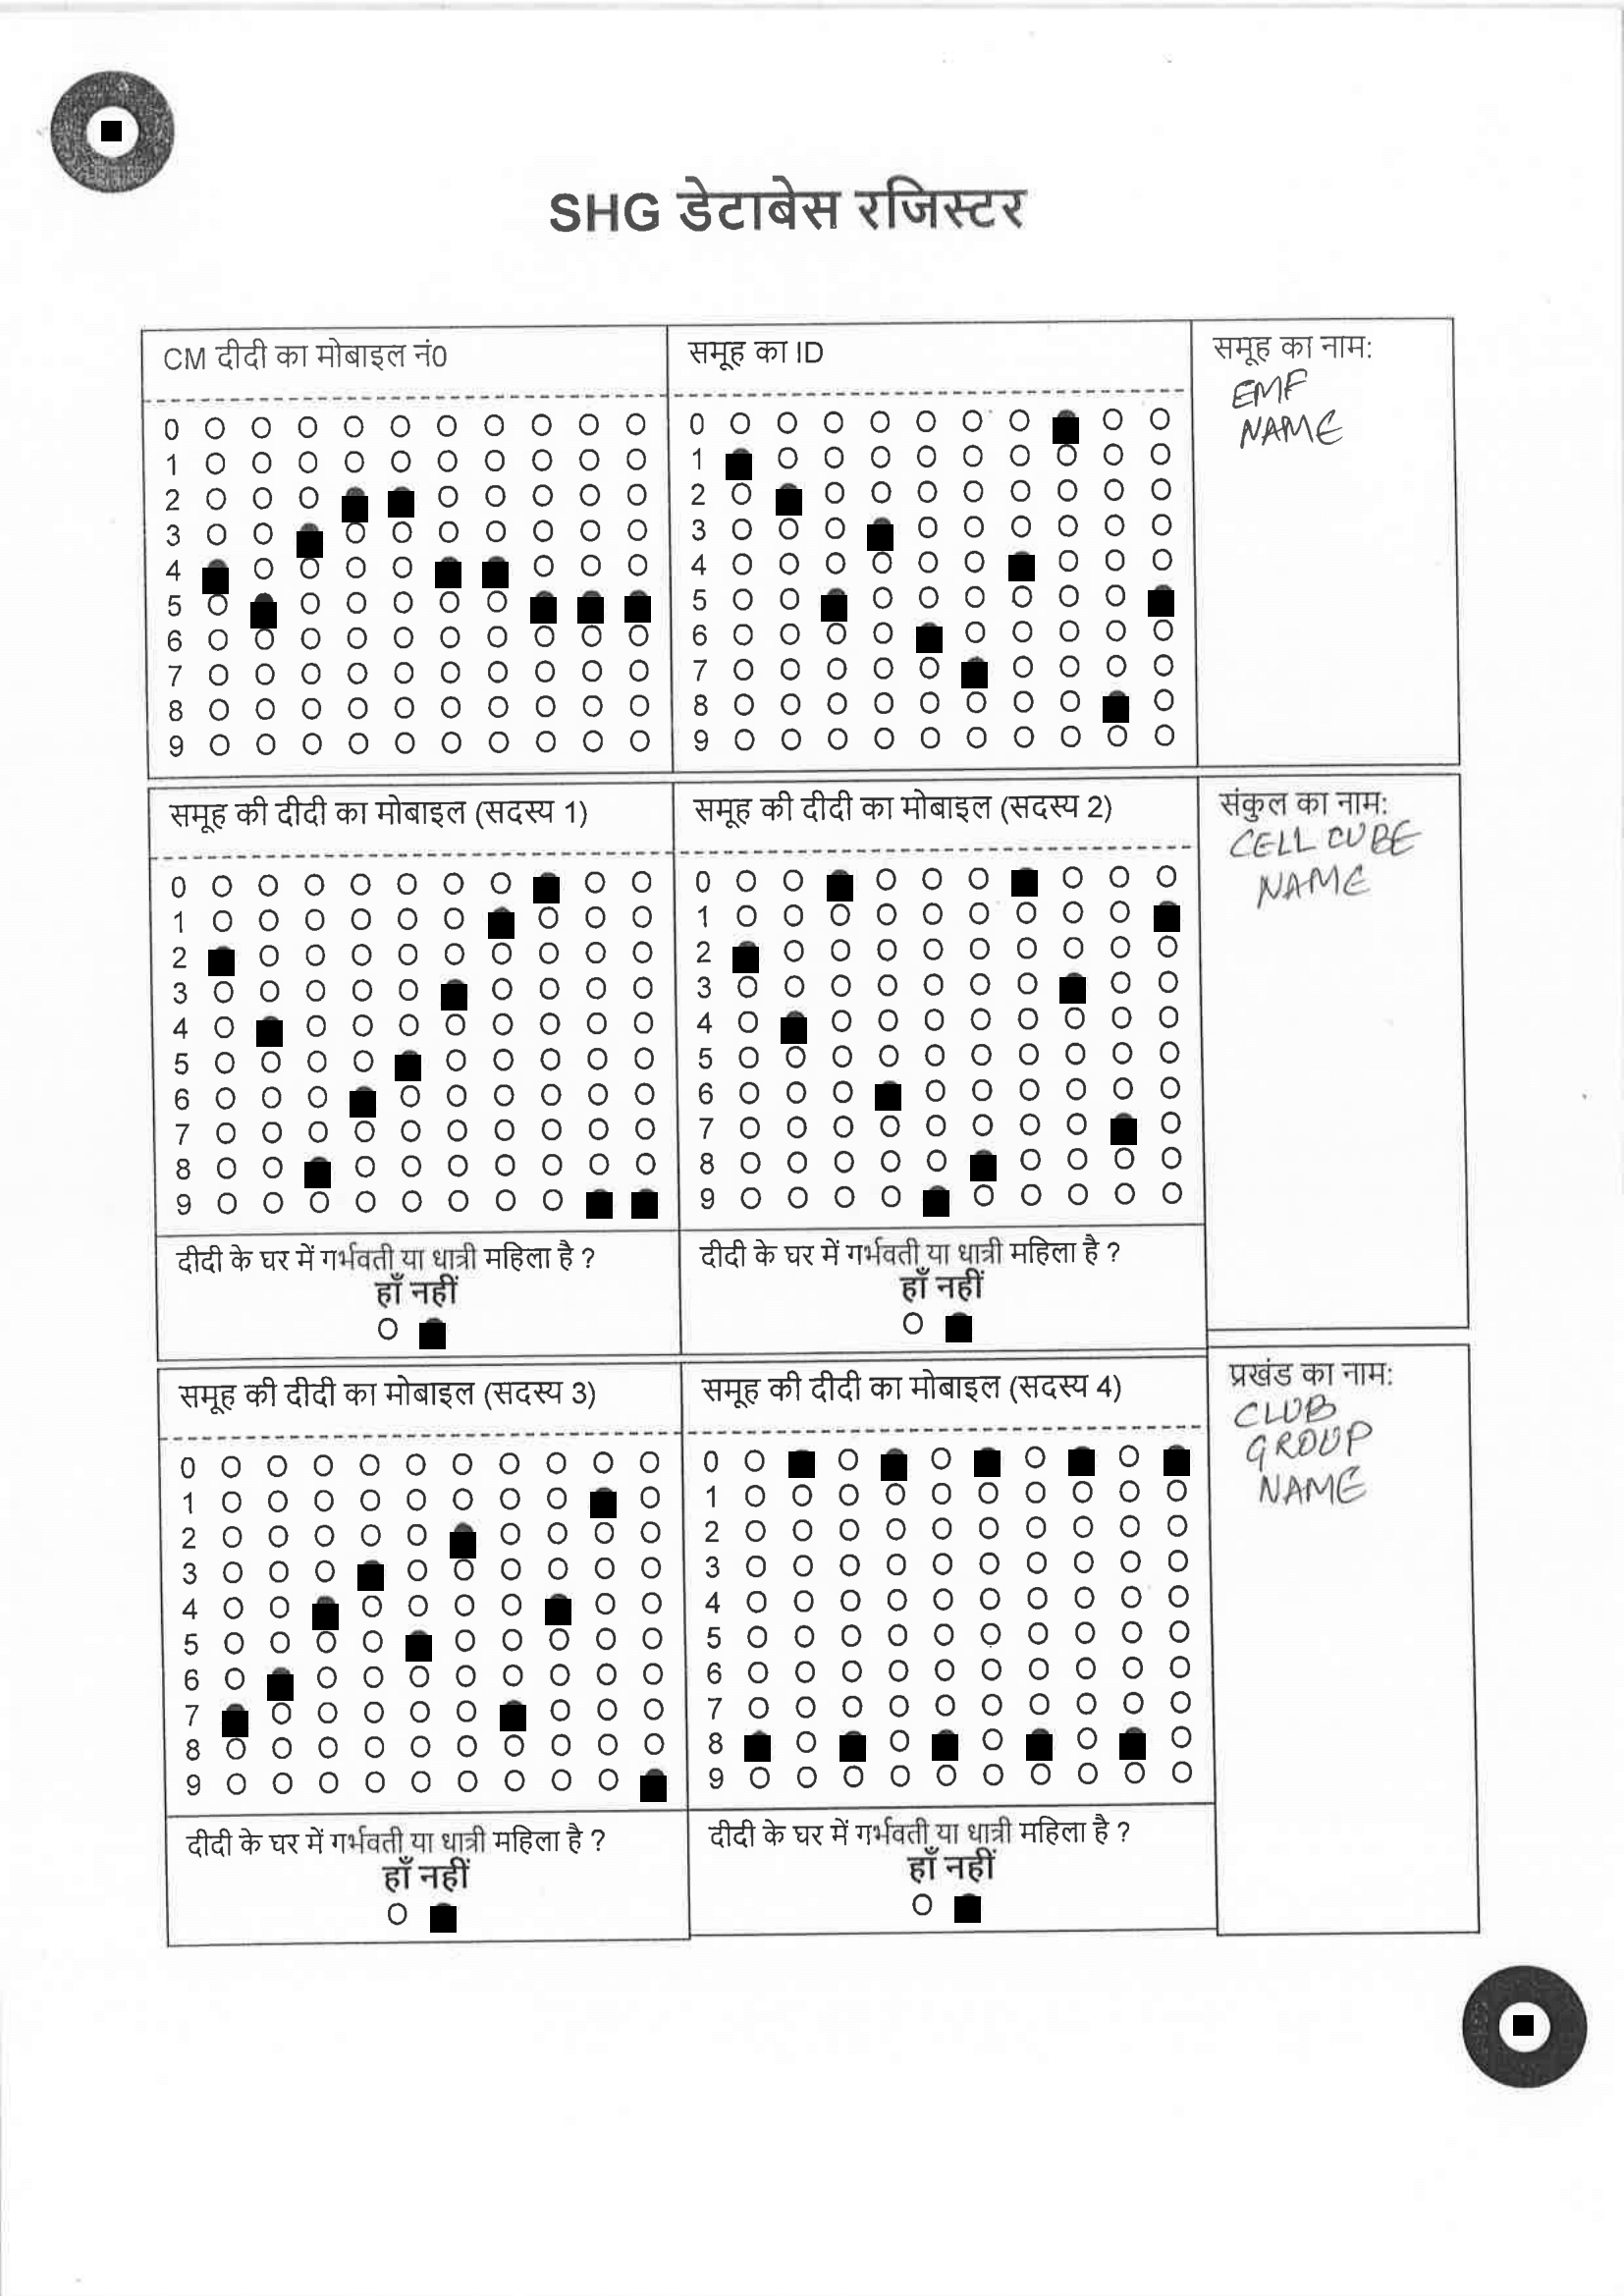 SHG डेटाबेस रजिस्टर
CM दीदी का मोबाइल नं0
0
1
2
3
4
5
6
7
8
9
समूह का ID
0
1
2
3
4
5
6
7
8
9
समूह का नाम:
EMF
NAME
समूह की दीदी का मोबाइल (सदस्य 1)
0
1
2
3
4
5
6
7
8
9
दीदी के घर में गर्भवती या धात्री महिला है ?
हाँ नहीं
समूह की दीदी का मोबाइल (सदस्य 2)
0
1
2
3
4
5
6
7
8
9
दीदी के घर में गर्भवती या धात्री महिला है ?
हाँ नहीं
संकुल का नाम:
CELL CUBE
NAME
समूह की दीदी का मोबाइल (सदस्य 3)
0
1
2
3
4
5
6
7
8
9
दीदी के घर में गर्भवती या धात्री महिला है ?
हाँ नहीं
समूह की दीदी का मोबाइल (सदस्य 4)
0
1
2
3
4
5
6
7
8
9
दीदी के घर में गर्भवती या धात्री महिला है ?
हाँ नहीं
प्रखंड का नाम:
CLUB
GROUP
NAME